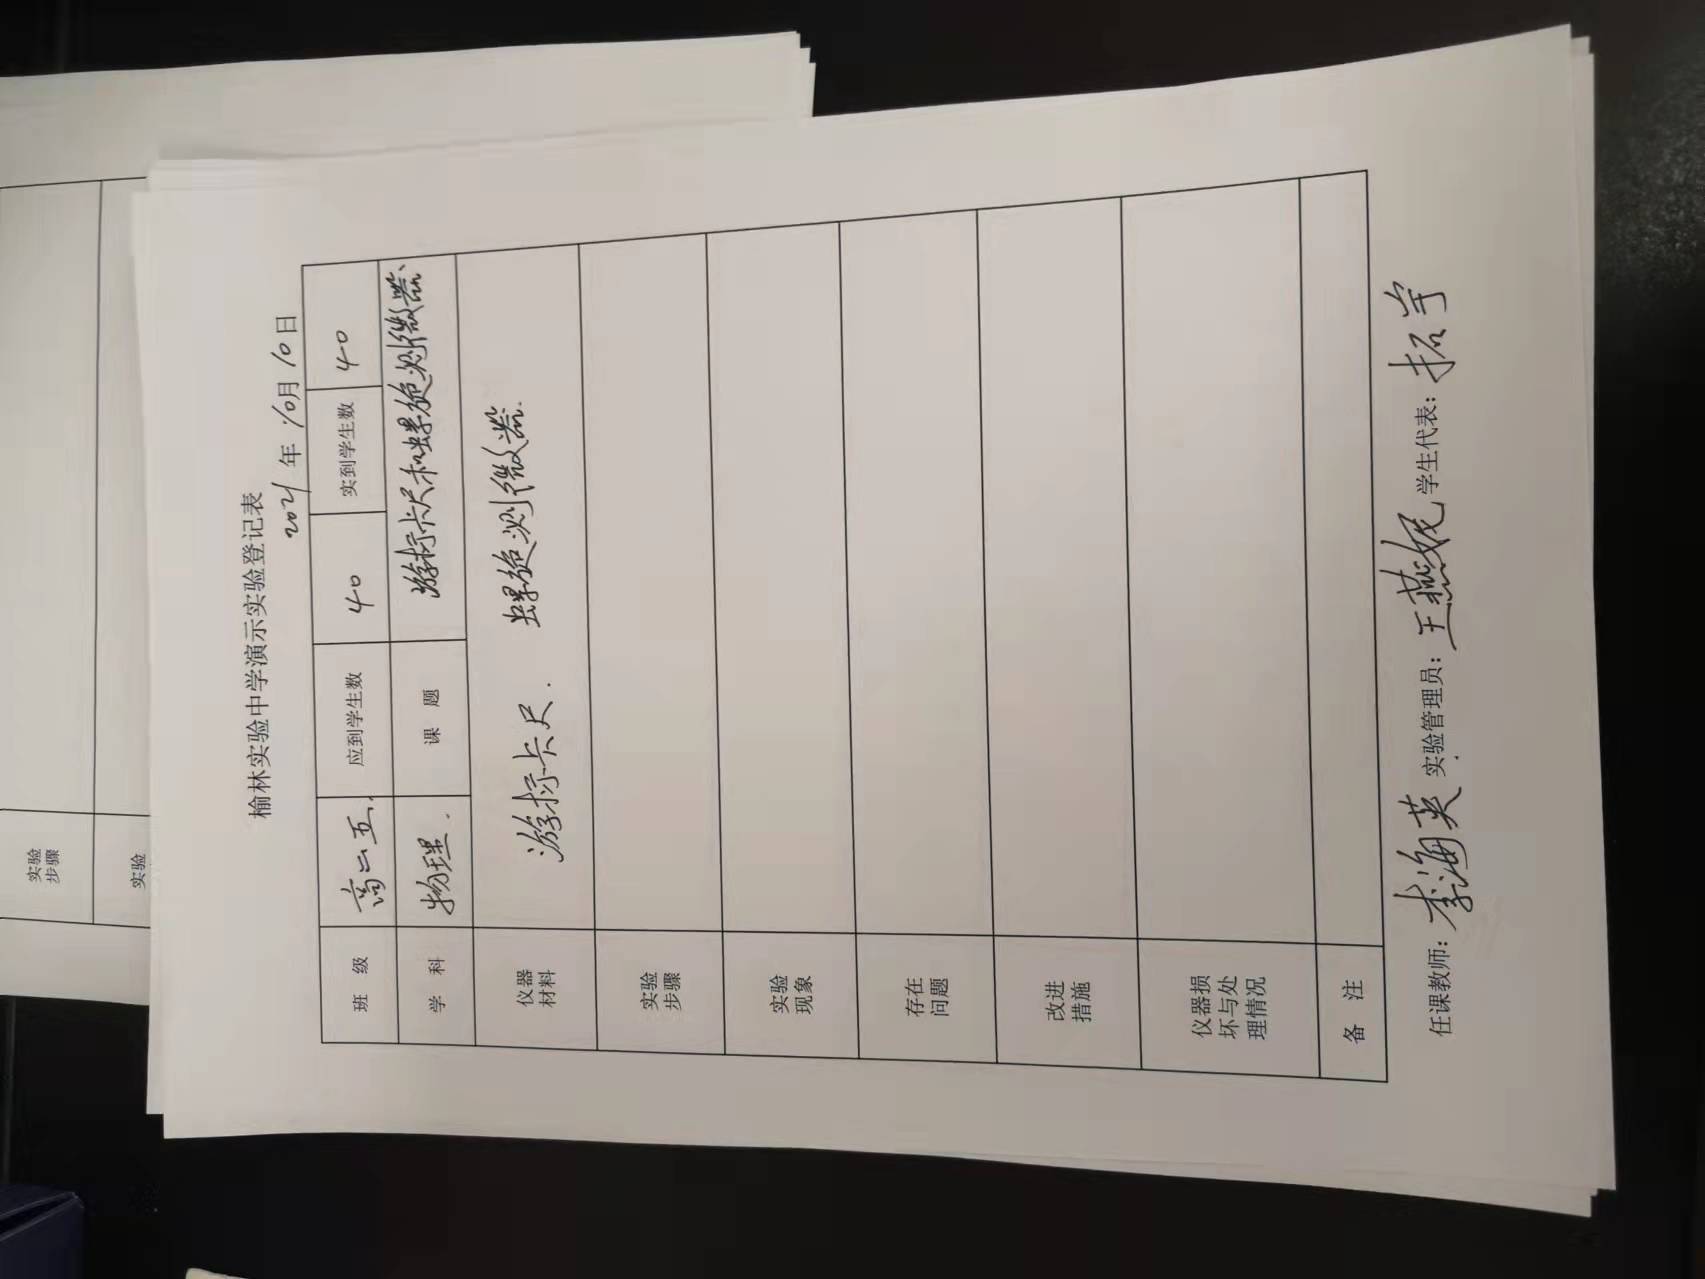 榆林实验中学演示实验登记表
2021年10月10日
班 级 高二五. 应到学生数 40 实到学生数 40
学 科 物理. 课 题 游标卡尺和螺旋测微器、
仪器
材料 游标卡尺. 螺旋测微器.
实验
步骤
实验
现象
存在
问题
改进
措施
仪器损
坏与处
理情况
备 注
任课教师: 李海英 实验管理员: 王燕妮 学生代表: 拓宇
实验
步骤
实验